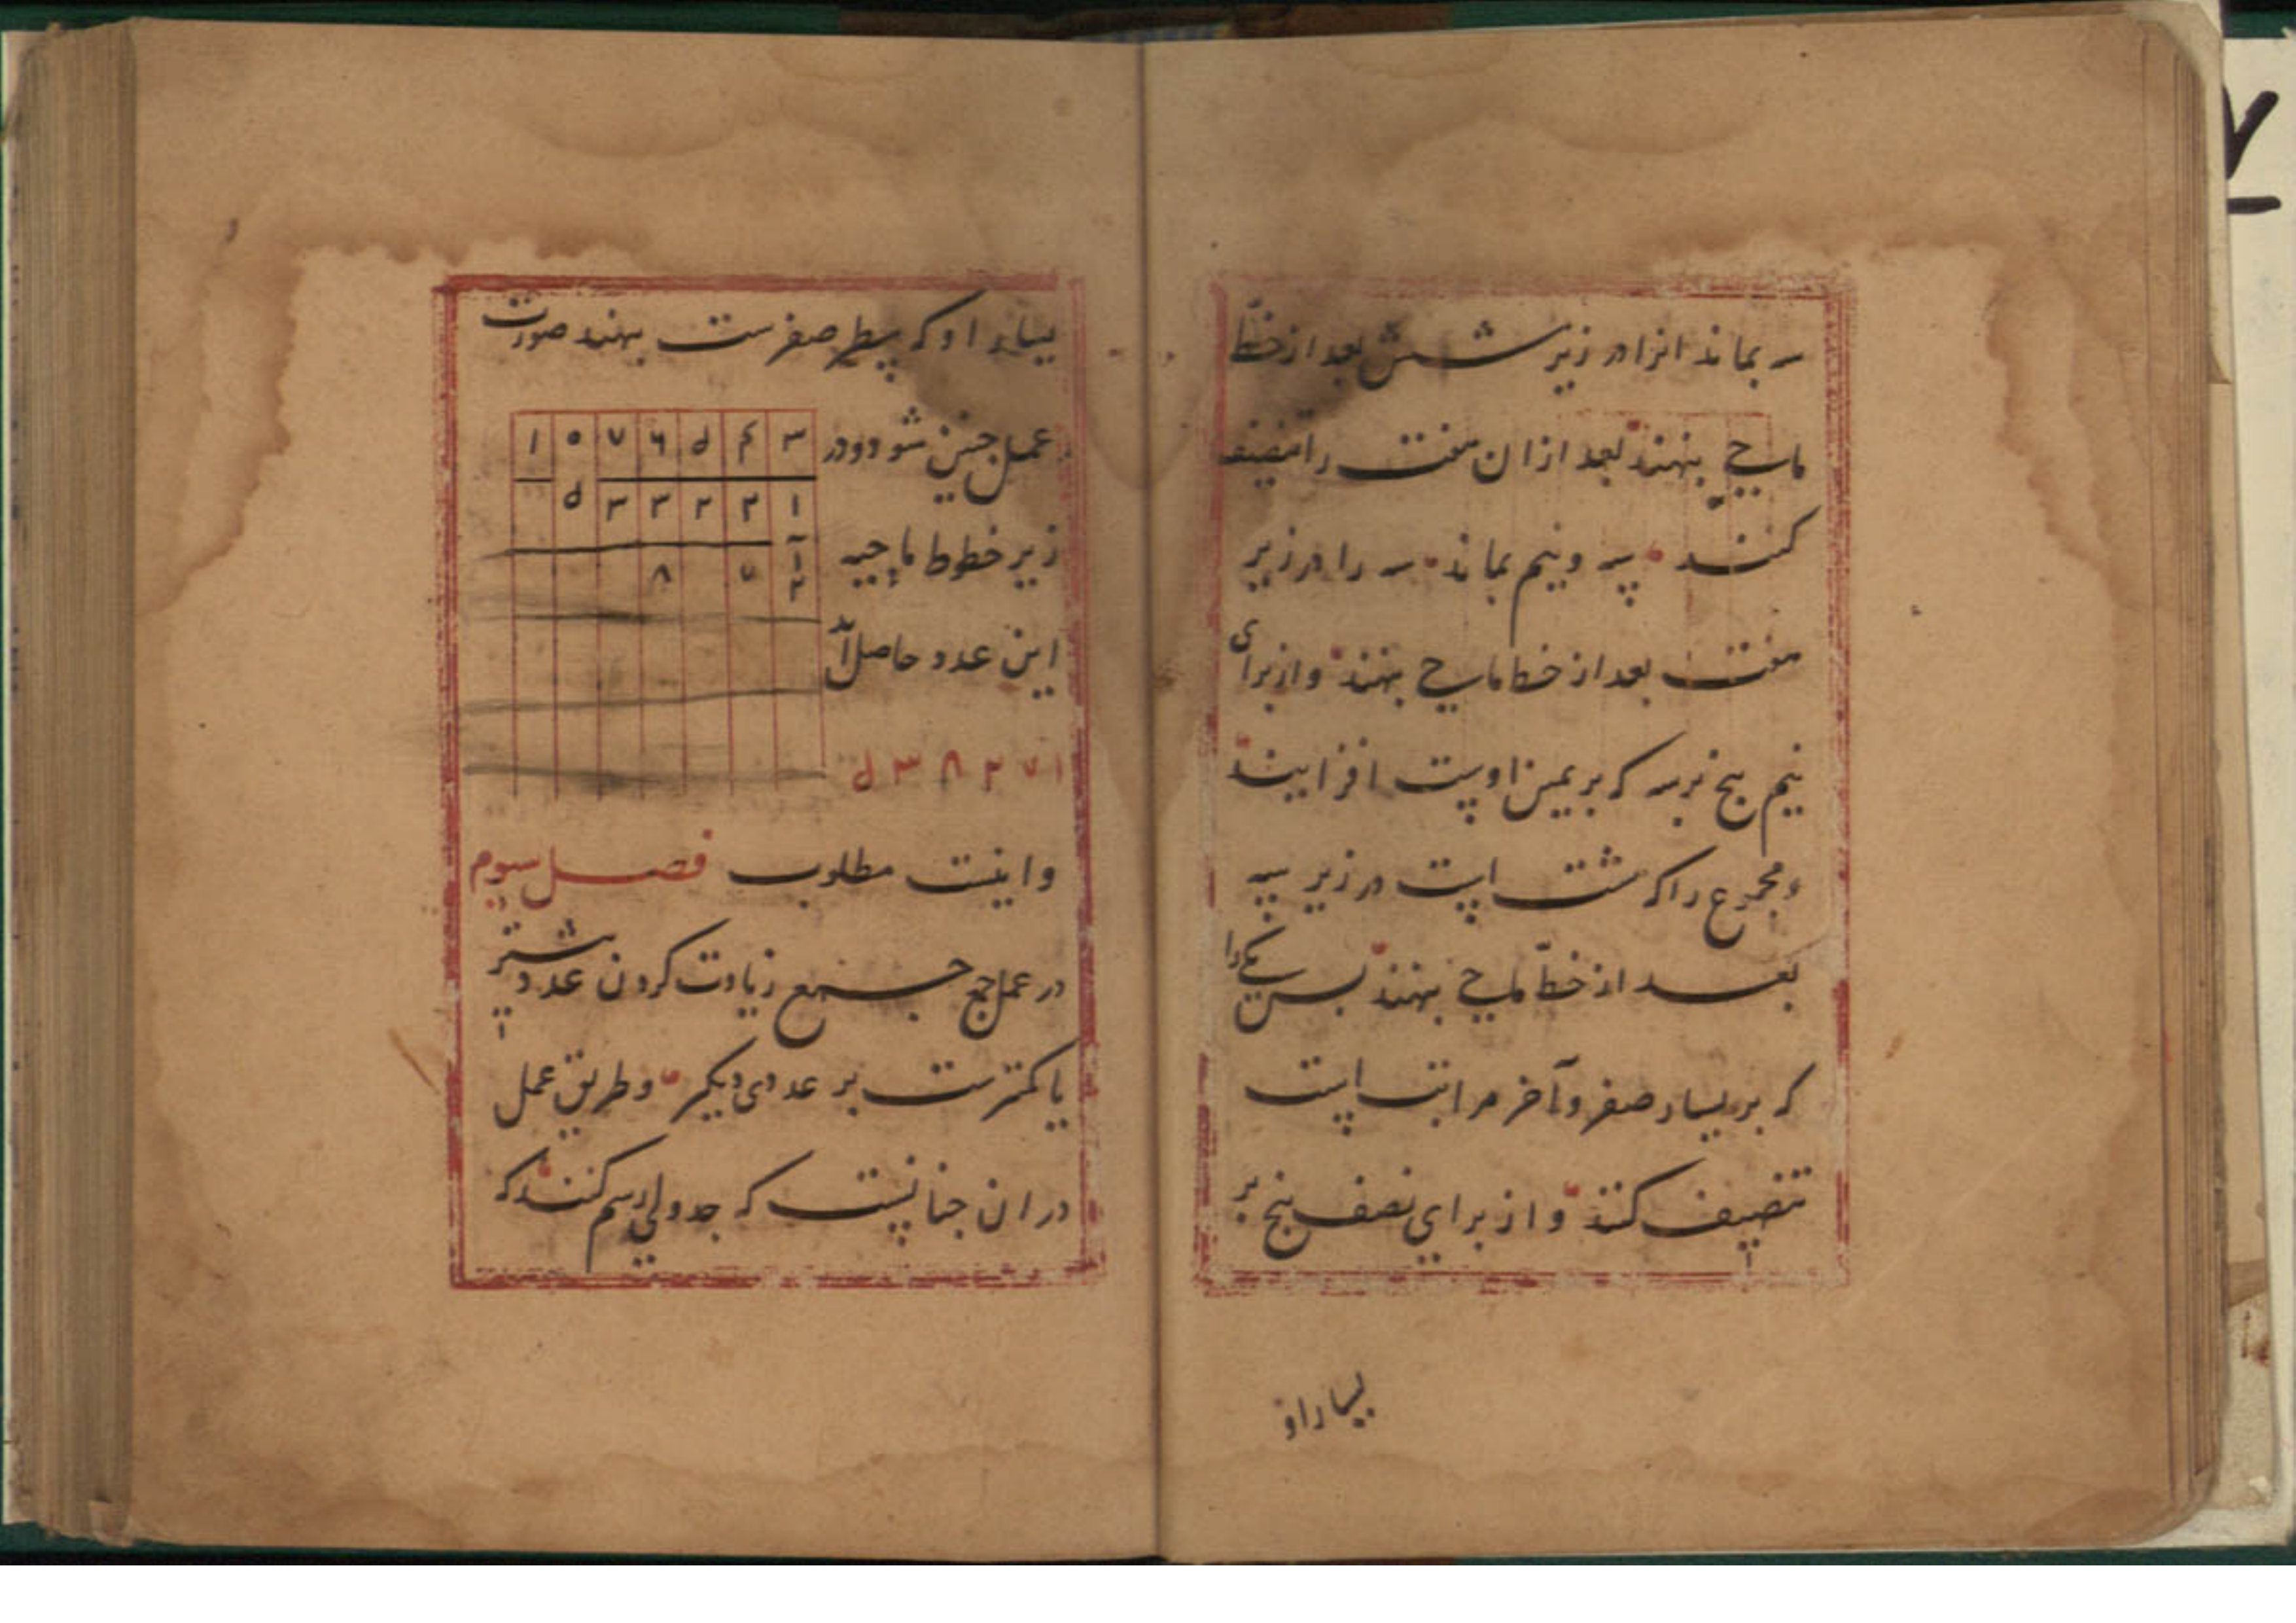 سه بماند انرا در زیر شش بعد از خطّ
ماحی بنهند بعد ازان هفت را تنصیف
کنند سه و نیم بماند سه را در زیر
هفت بعد از خط ماحی بنهند و از برای
نیم پنج بر سه که بر یمین اوست افزایند
و مجموع را که هشت است در زیر سه
بعد از خطّ ماحی بنهند پس یکی را
که بر یسار صفر و آخر مراتب است
تنصیف کنند و از برای نصف پنج بر
یسار او
یسار او که سطر صفرست بنهند صورت
عمل چنین شود و در
زیر خطوط ماحیه
این عدد حاصل آمد
۱ ۰ ۷ ۶ ۵ ۴ ۳
۵ ۳ ۳ ۲ ۲ ۱
۸ ۷ ۲
۵ ۳ ۸ ۲ ۷ ۱
و اینست مطلوب فصل سیوم
در عمل جمع جمع زیادت کردن عدد بیشتر
یا کمترست بر عددی دیگر و طریق عمل
در ان چنانست که جدولی رسم کنند که